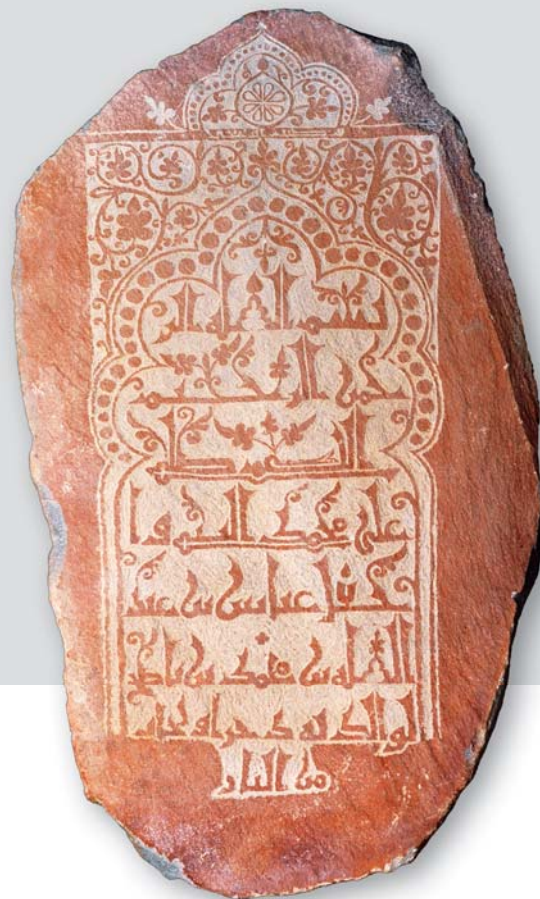 بسم الله الر
حمن الرحيم
اللهم صل
على محمد النبي وا
غفر لعباس بن عبد
الله بن محمد بن
لوالديه
من النار